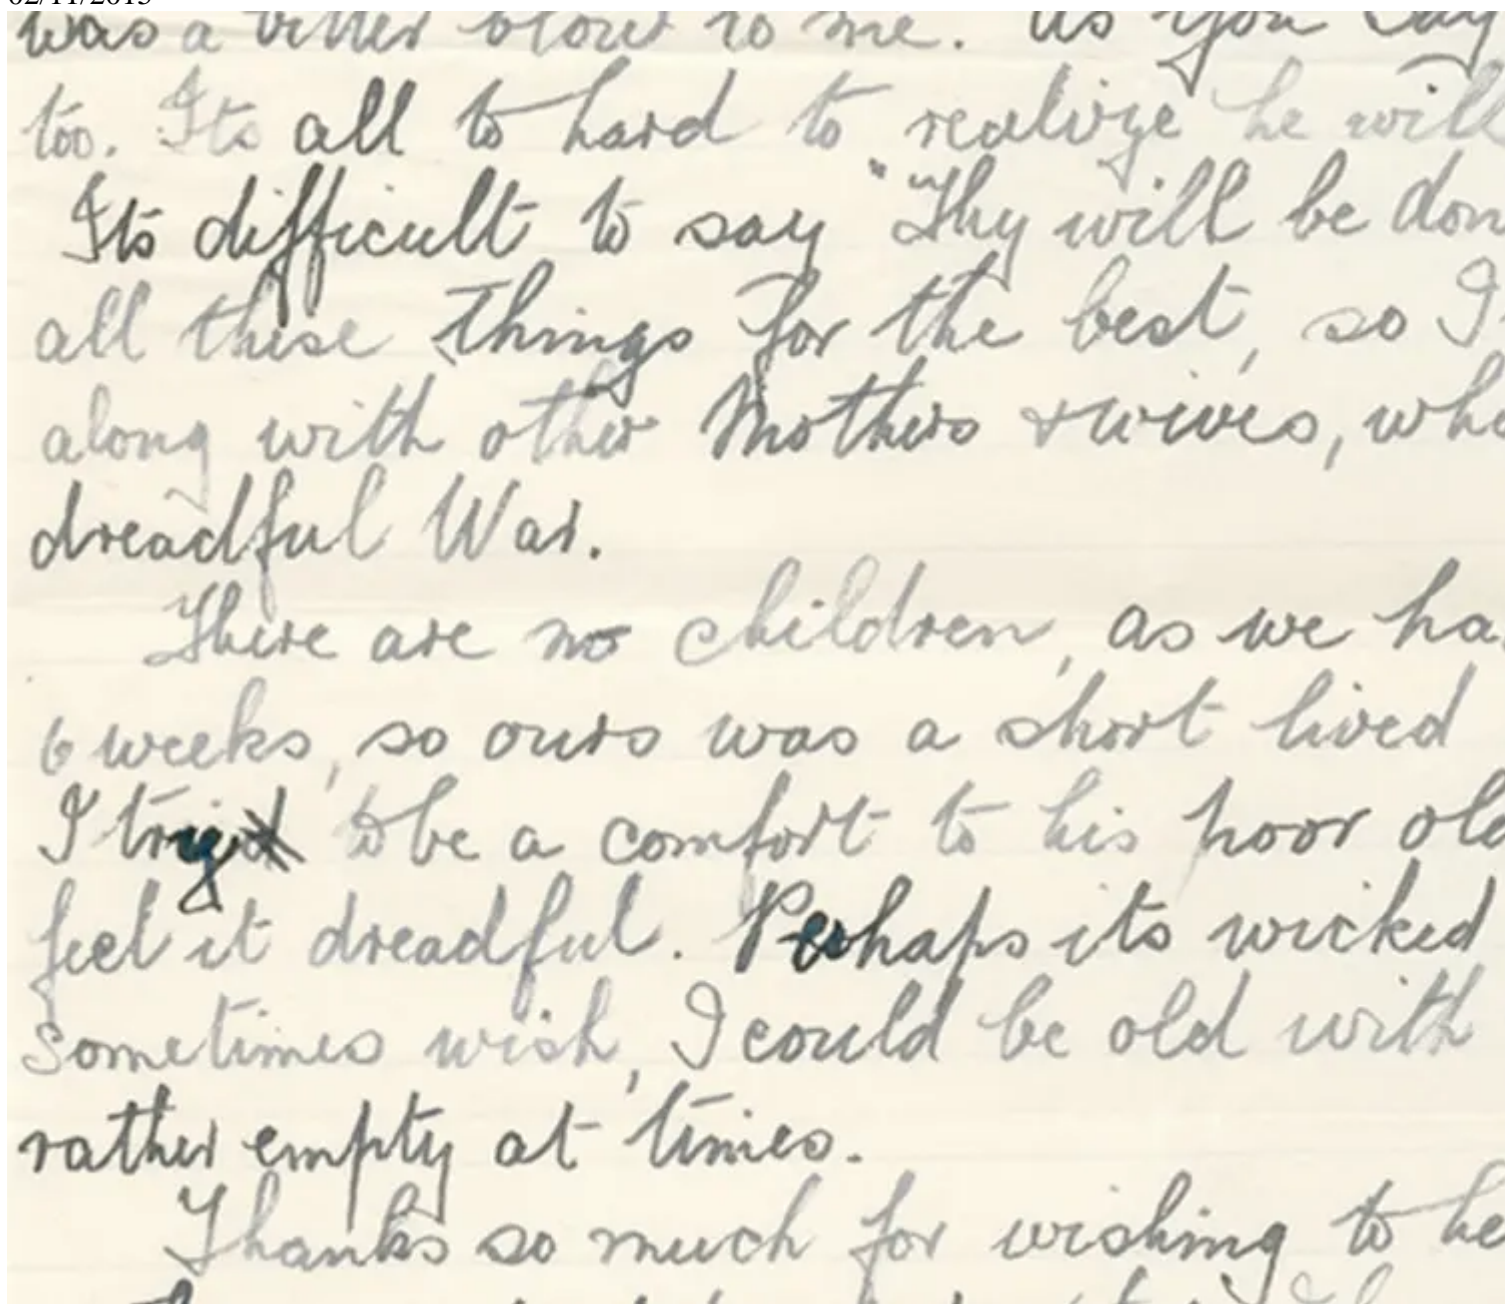 02/11/2015
was a bitter blow to me. As you say
too. Its all to hard to realize he will
Its difficult to say "Thy will be don
all these things for the best, so I
along with other Mothers & wives, who
dreadful War.
There are no children, as we ha
6 weeks, so ours was a short lived
I try to be a comfort to his poor old
feel it dreadful. Perhaps its wicked
Sometimes wish, I could be old with
rather empty at times.
Thanks so much for wishing to he